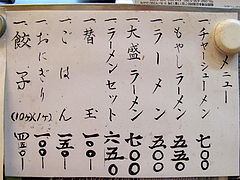 メニュー
一 チャーシューメン 七〇〇
一 もやしラーメン 五五〇
一 ラーメン 五〇〇
一 大盛ラーメン 六〇〇
一 ラーメンセット 六五〇
一 替玉 一〇〇
一 ごはん 一五〇
一 おにぎり(1ヶ) 一〇〇
一 餃子(10ヶ) 四五〇